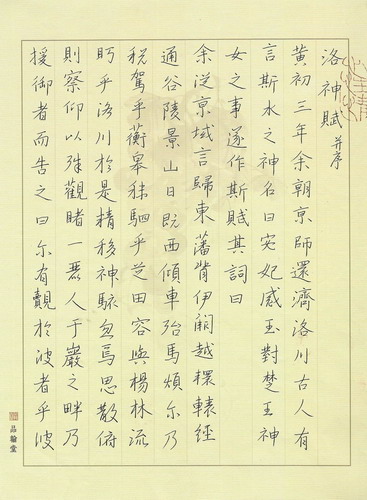 洛神賦 并序
黃初三年余朝京師還濟洛川古人有
言斯水之神名曰宓妃感玉對楚王神
女之事遂作斯賦其詞曰
余從京域言歸東藩背伊闕越轘轅經
通谷陵景山日既西傾車殆馬煩尒乃
稅駕乎蘅皋秣駟乎芝田容與楊林流
眄乎洛川於是精移神駭忽焉思散俯
則察仰以殊觀睹一麗人于巖之畔乃
援御者而告之曰尒有覿於彼者乎彼
品翰堂